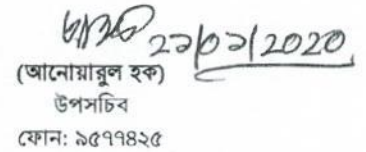 ২১/০১/2020
(আনোয়ারুল হক)
উপসচিব
ফোন: ৯৫৭৭৪২৫